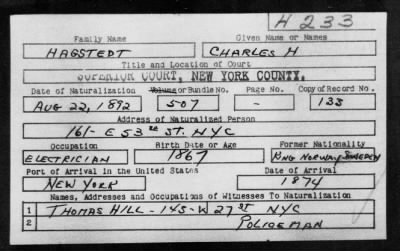 H 233
Family Name Given Name or Names
HAGSTEDT CHARLES H
Title and Location of Court
SUPERIOR COURT, NEW YORK COUNTY.
Date of Naturalization Volume or Bundle No. Page No. Copy of Record No.
AUG 22, 1892 507 - 133
Address of Naturalized Person
161- E 53RD ST. NYC
Occupation Birth Date or Age Former Nationality
ELECTRICIAN 1867 KING NORWAY SWEDEN
Port of Arrival in the United States Date of Arrival
NEW YORK 1874
Names, Addresses and Occupations of Witnesses To Naturalization
1 THOMAS HILL - 145-W 27 ST NYC
2 POLICEMAN